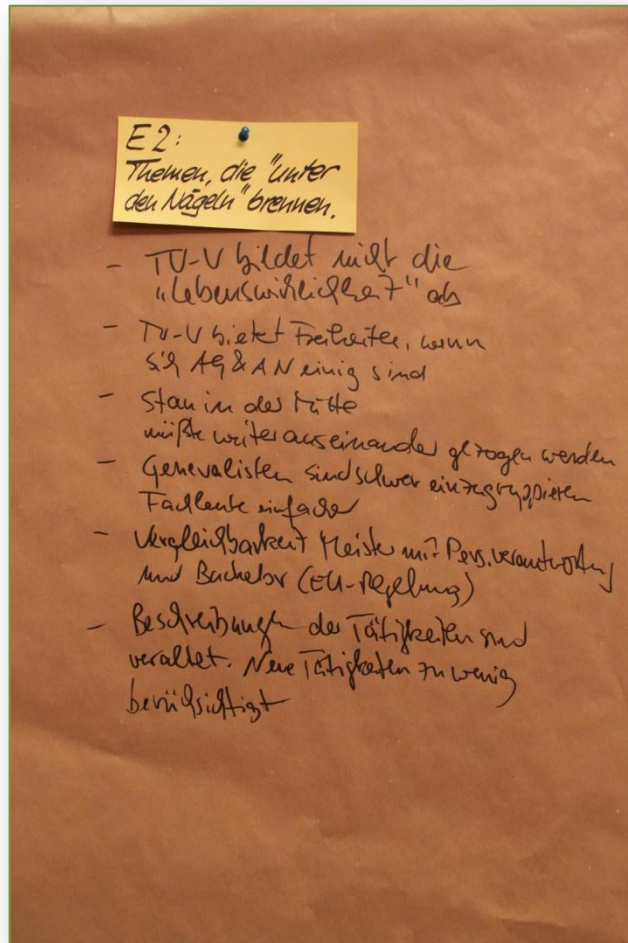 E2:
Themen, die "unter
den Nägeln" brennen.
- TV-V bildet nicht die
„Lebenswirklichkeit" ab
- TV-V bietet Freiheiten, wenn
sich AG & AN einig sind
- Stau in der Mitte
müßte weiter auseinander gezogen werden
- Generalisten sind schwer einzugruppieren
Fachleute einfacher
- Vergleichbarkeit Meister mit Pers.verantwortung
und Bachelor (EU-Regelung)
- Beschreibungen der Tätigkeiten sind
veraltet. Neue Tätigkeiten zu wenig
berücksichtigt